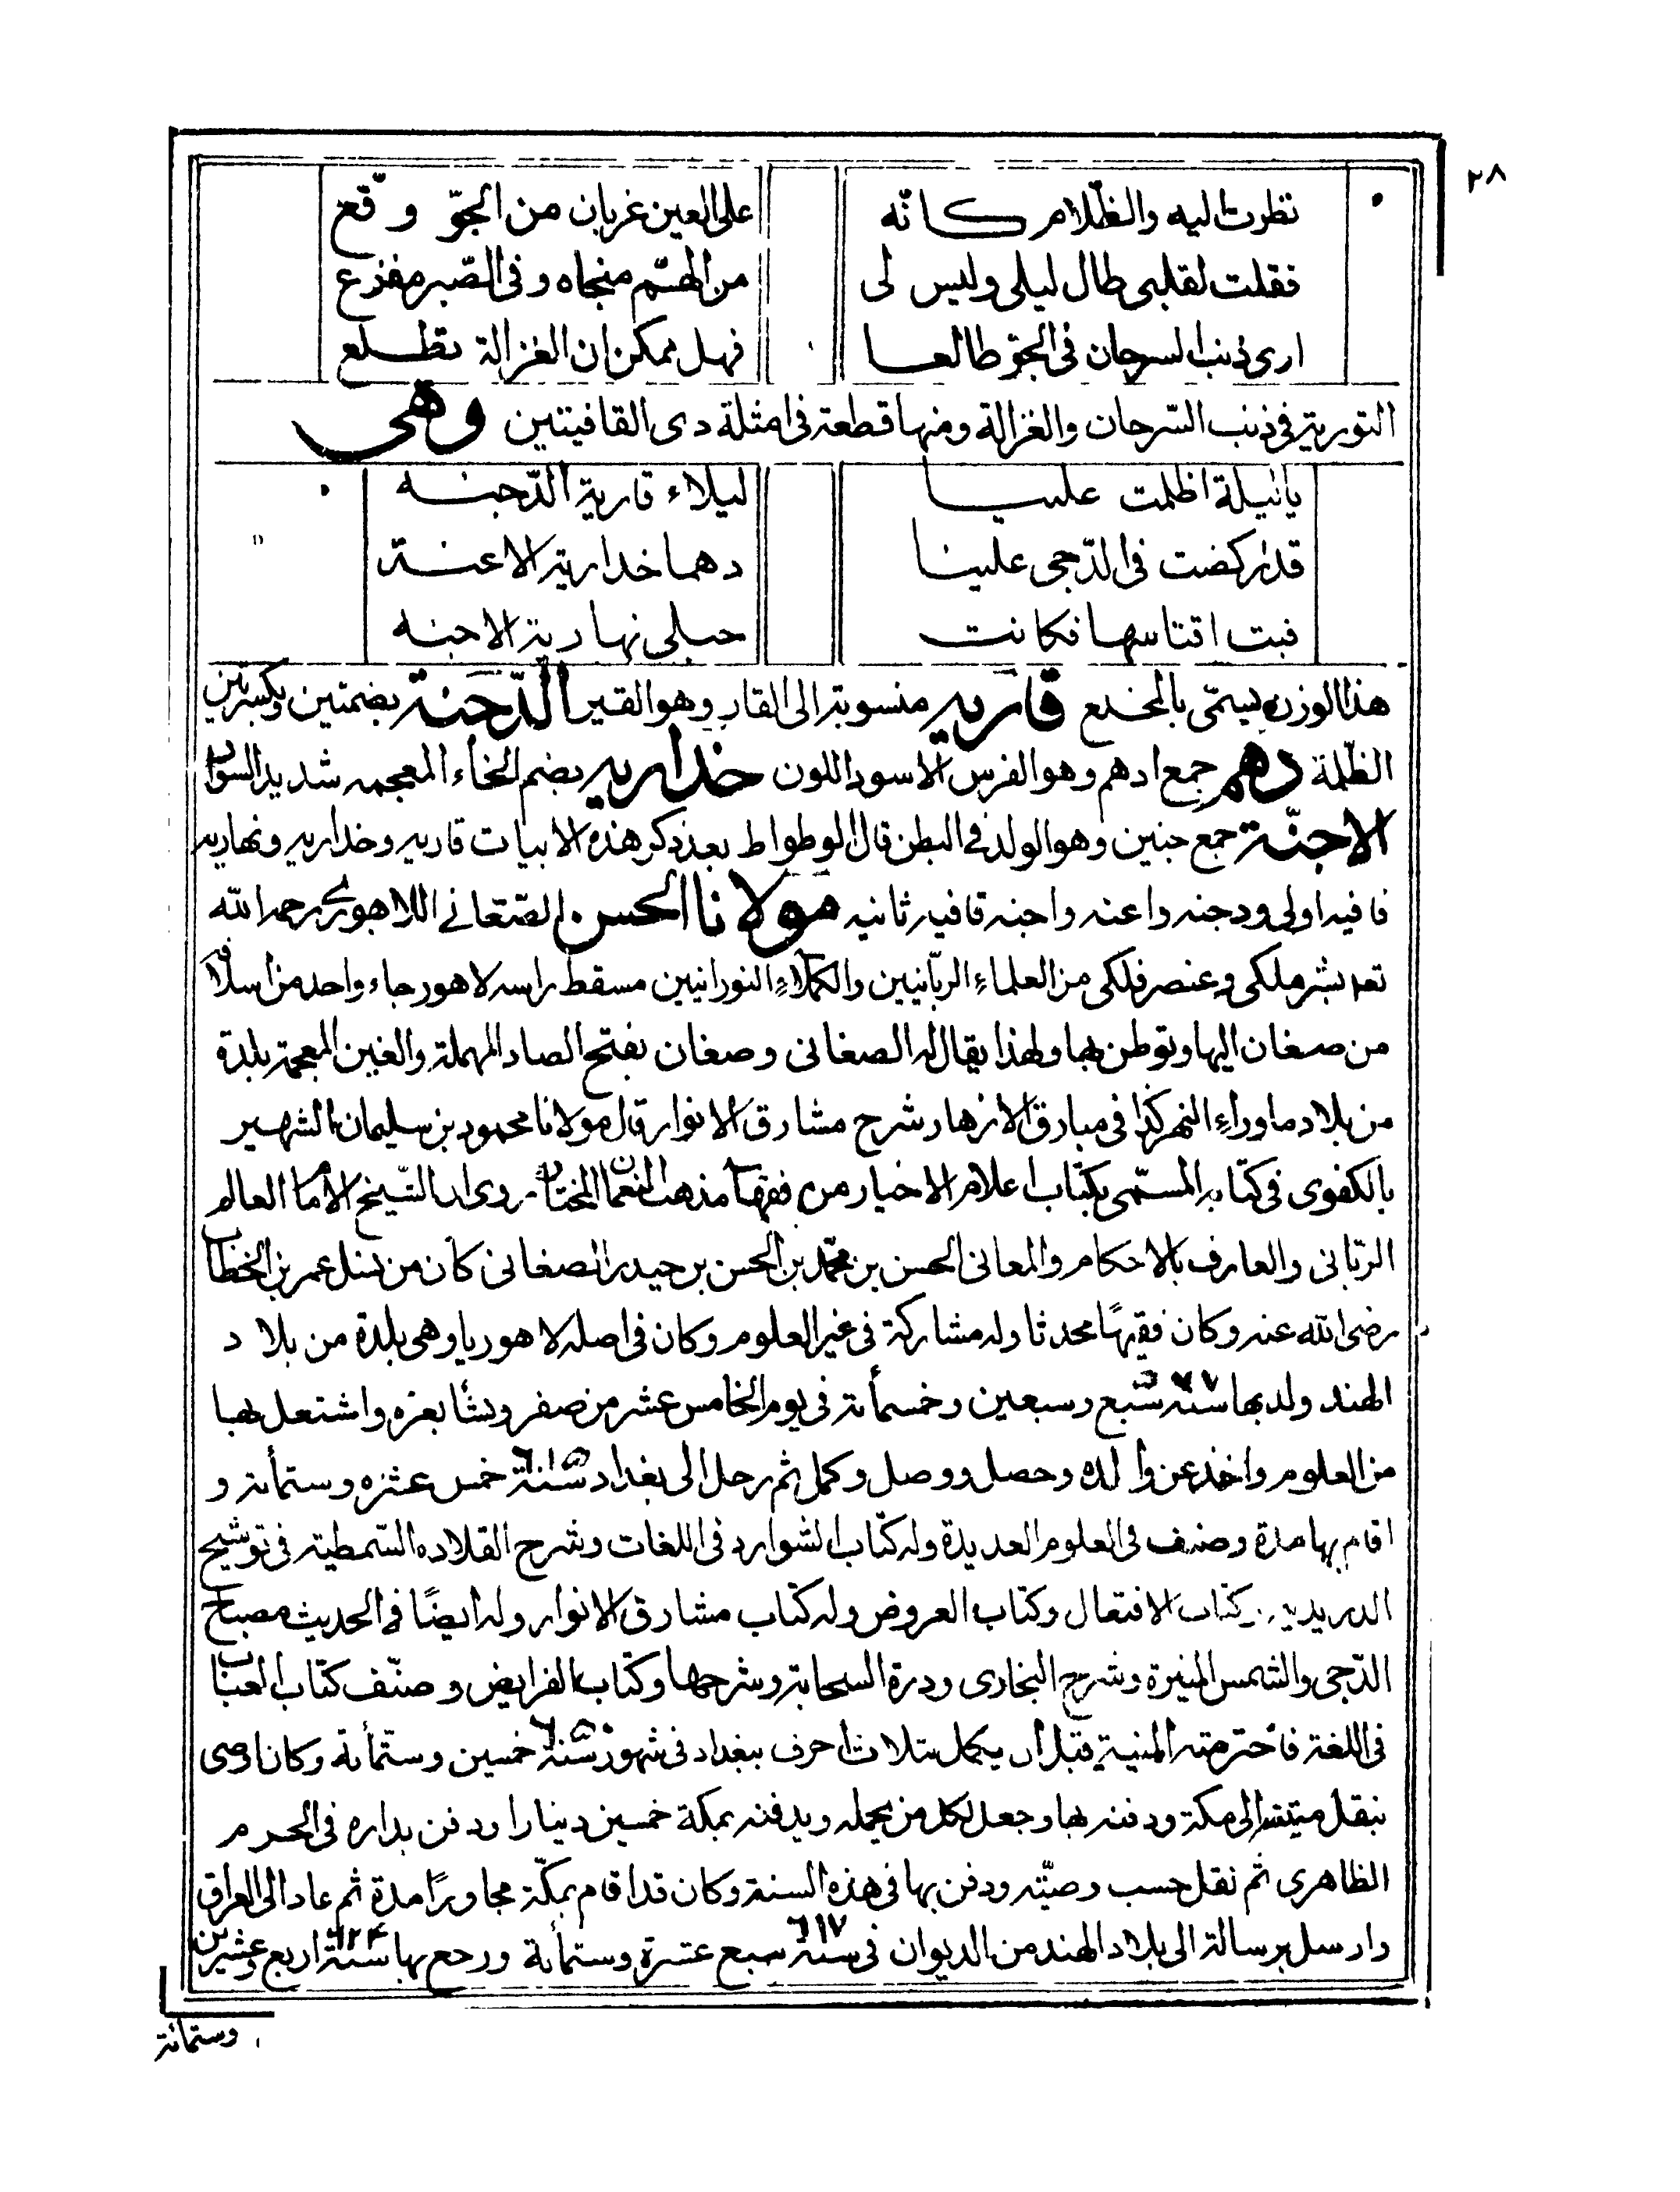 ٢٨
نظرت اليه والظلام كانّه على العين غربان من الجوّ وقّع
فقلت لقلبى طال ليلى وليس لى من الهمّ منجاه وفى الصّبر مفزع
ارى ذنب السرحان فى الجوّ طالعا فهل ممكن ان الغزالة تطلع
التورية فى ذنب السّرحان والغزالة ومنها قطعة فى امثلة ذى القافيتين وهى
ياليلة اظلمت علينا ليلاء قارية الدّجنه
قد ركضت فى الدّجى علينا دهما خدارية الاعنة
فبت اقتاسها فكانت حبلى نهارية الاجنه
هذا الوزن يسمّى بالمخلع قاريه منسوبة الى القار وهو القير الدّجنة بضمتين وبكسرتين
الظّلمة دهم جمع ادهم وهو الفرس الاسود اللون خداريه بضم الخاء المعجمه شديد السواد
الاجنّة جمع جنين وهو الولد فى البطن قال الوطواط بعد ذكر هذه الابيات قاريه وخداريه ونهاريه
قافيه اولى ودجنه واعنه واجنه قافيه ثانيه مولانا الحسن الصّغانے اللاهورے رحمه الله
تعه بشر ملكى وعنصر فلكى من العلماء الربّانيين والكملاء النورانيين مسقط راسه لاهور جاء واحد من اسلافه
من صغان اليها وتوطن بها ولهذا يقال له الصغانى وصغان بفتح الصاد المهملة والغين المعجمة بلدة
من بلاد ماوراء النهر كذا فى مبارق الازهار شرح مشارق الانوار قال مولانا محمود بن سليمان الشهير
بالكفوى فى كتابه المسمّى بكتاب اعلام الاخيار من فقهاء مذهب النعمان المختار روى ان الشيخ الامام العالم
الربّانى والعارف بالاحكام والمعانى الحسن بن محمّد بن الحسن بن حيدر الصغانى كان من نسل عمر بن الخطاب
رضى الله عنه وكان فقيهًا محدثا وله مشاركة فى غير العلوم وكان فى اصله لاهوريا وهى بلدة من بلاد
الهند ولد بها سنة ٥٧٧ سبع وسبعين وخمسمأئة فى يوم الخامس عشر من صفر ونشأ بغزه واشتغل بها
من العلوم واخذ عن والده وحصل ووصل وكمل ثم رحل الى بغداد سنة ٦١٥ خمس عشره وستمأئة و
اقام بها مدة وصنف فى العلوم العديدة وله كتاب الشوارد فى اللغات وشرح القلاده السّمطية فى توشيح
الدريديه وكتاب الافتعال وكتاب العروض وله كتاب مشارق الانوار وله ايضًا فى الحديث مصباح
الدّجى والشمس المنيرة وشرح البخارى ودرة السحابة وشرحها وكتاب الفرايض وصنّف كتاب العباب
فى اللغة فاخترمته المنية قبل ان يكمل بثلاث احرف ببغداد فى شهور سنة ٦٥٠ خمسين وستمأئة وكان اوصى
بنقل ميّته الى مكة ودفنه بها وجعل لكل من يحمله ويدفنه بمكة خمسين دينارا ودفن بداره فى الحرم
الظاهرى ثم نقل حسب وصيّته ودفن بها فى هذه السنة وكان قد اقام بمكّة مجاورًا مدة ثم عاد الى العراق
وارسل برسالة الى بلاد الهند من الديوان فى سنة ٦١٧ سبع عشرة وستمأئة ورجع بها سنة ٦٢٤ اربع وعشرين
وستمائة